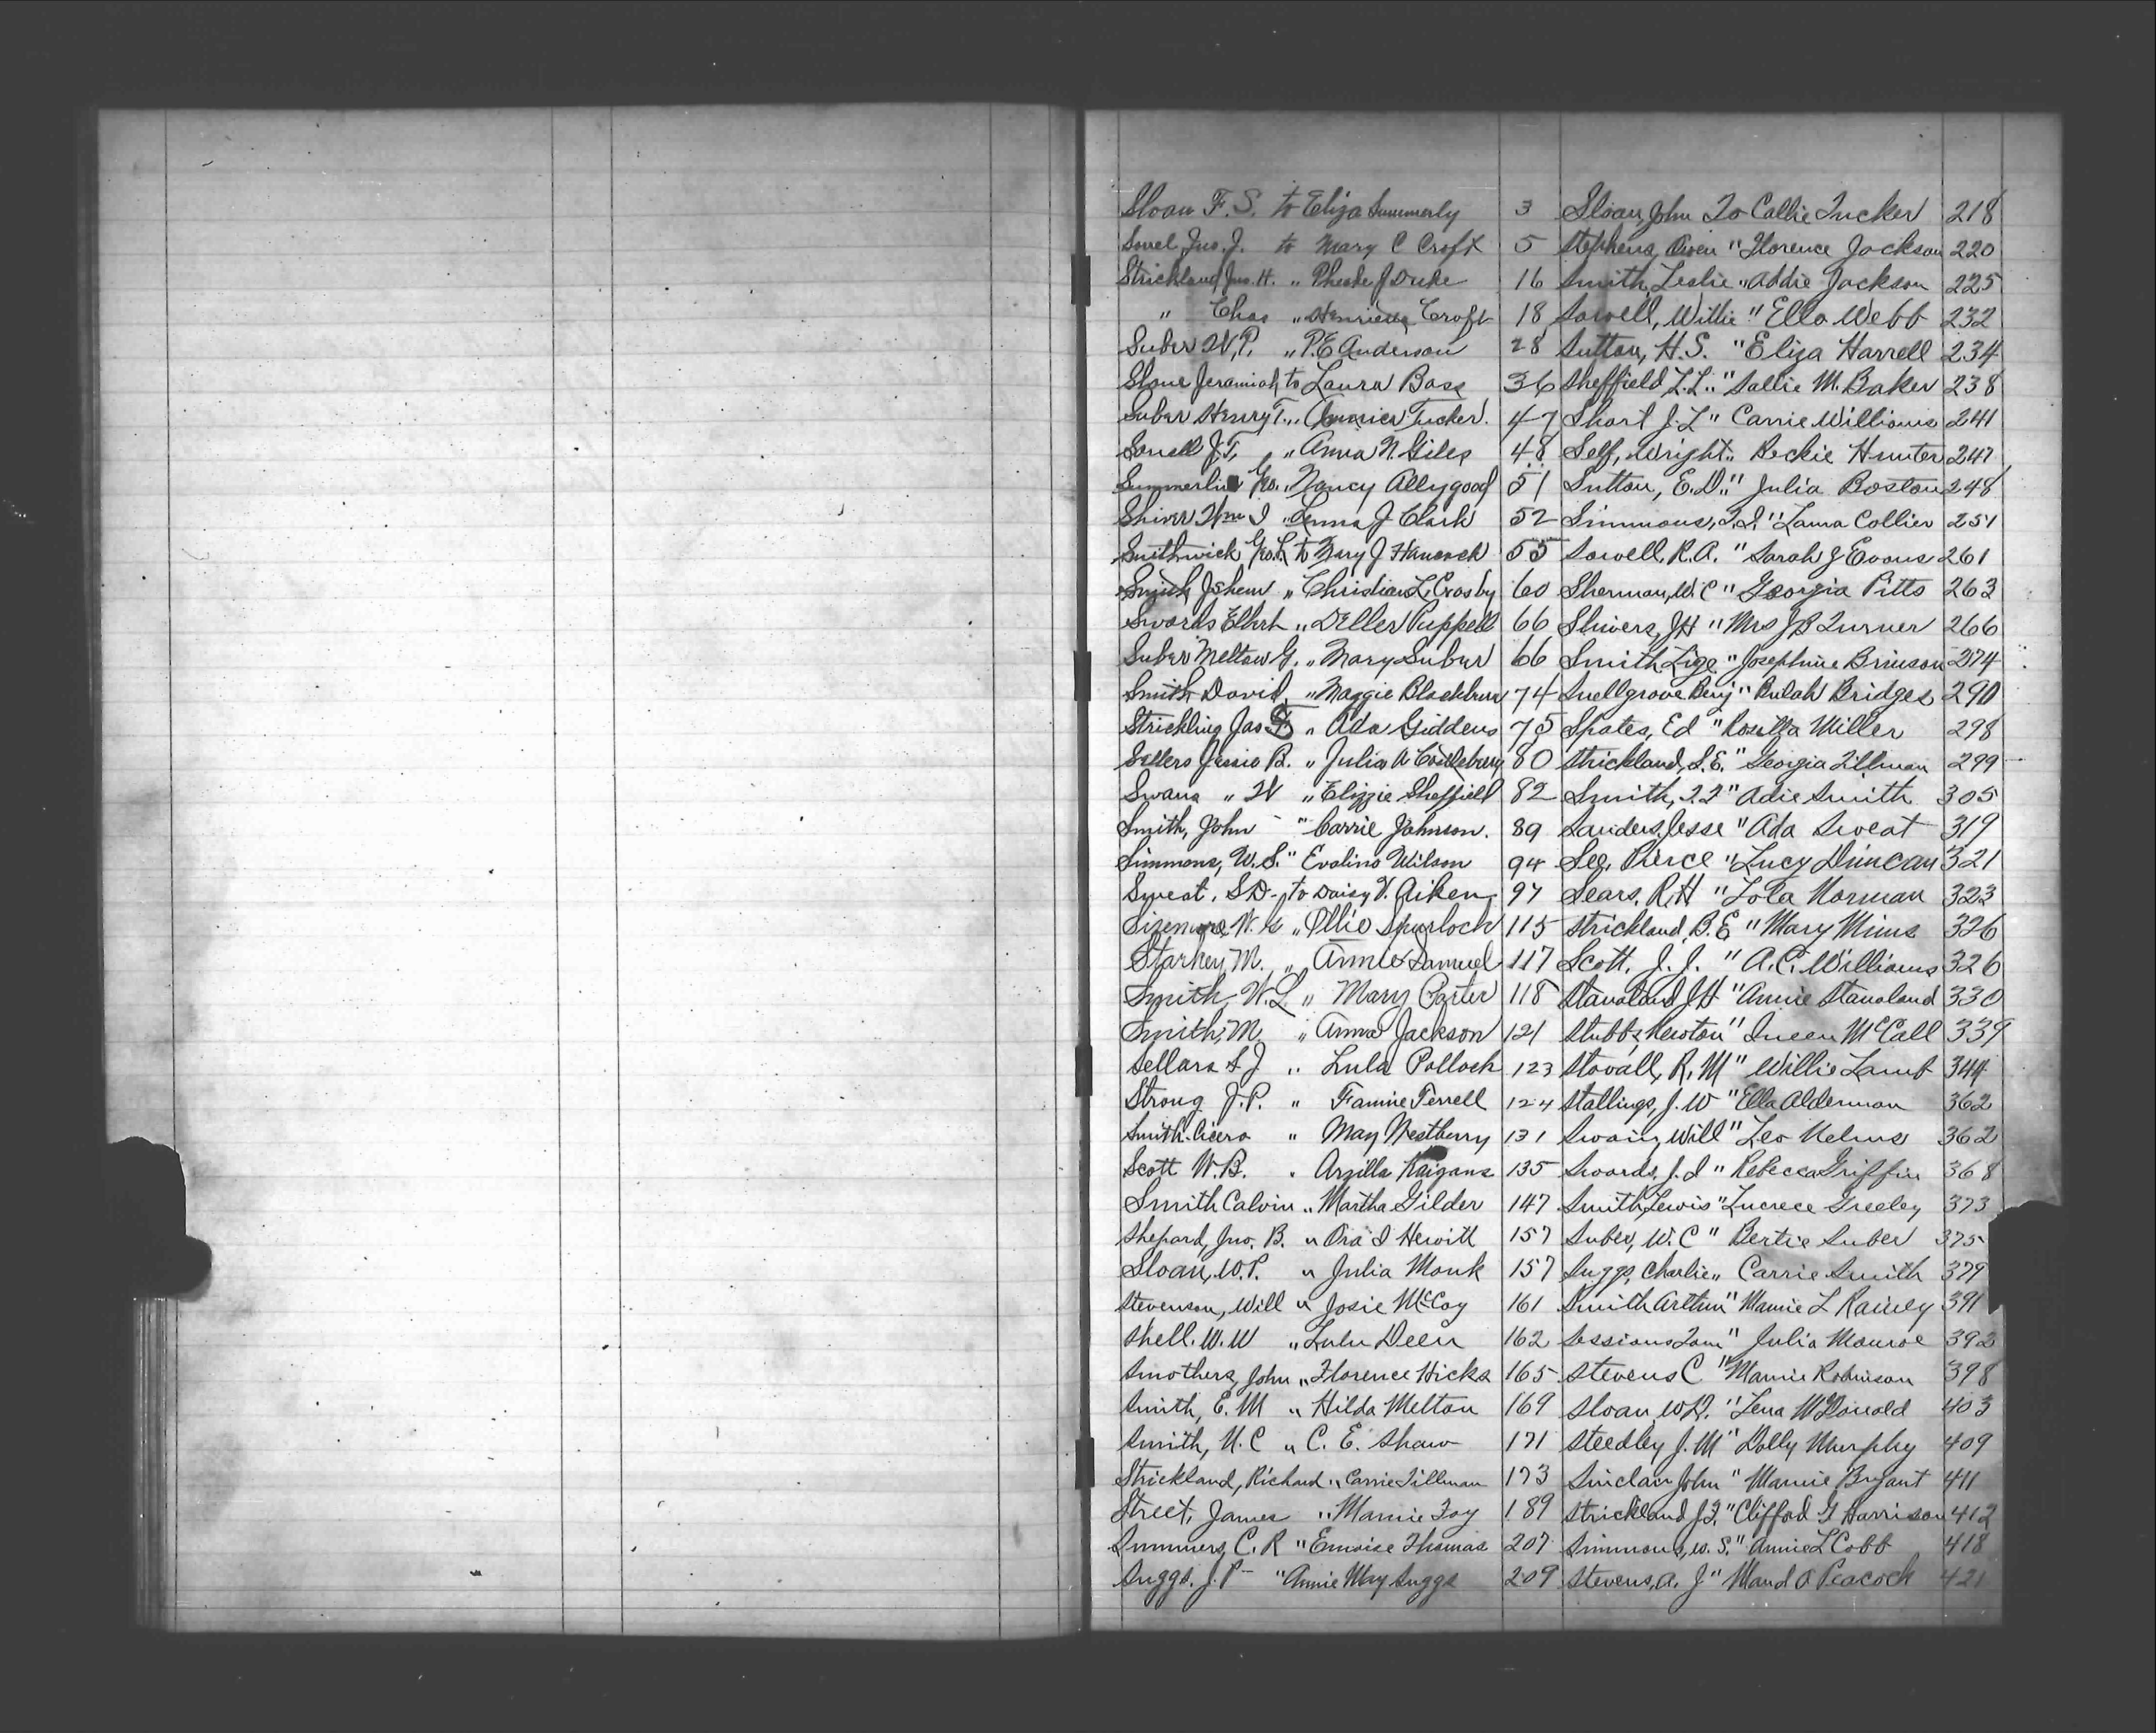 Sloan F. S. to Eliza Summerly 3
Sowel Jno. J. to Mary C Croft 5
Strickland Jno. H. " Pheobe J Duke 16
" Chas " Henrietta Croft 18
Suber W. P. " P. E Anderson 28
Slone Jeramiah to Laura Bass 36
Suber Henry T. " Tucker. 47
Sowell J. T. " Anna N. Giles 48
Summerlin Geo. " Nancy Allygood 51
Shiver Wm I " J Clark 52
Smithwick Geo. L to Mary J Hancock 55
Smith " Christian L. Crosby 60
Swords " Puppell 66
Suber Meltow G. " Mary Suber 66
Smith David " Maggie Blackburn 74
Strickling Jas " Ada Giddens 75
Sellers Jessie B. " Julia A 80
Swans " W " Elizzie Sheffield 82
Smith, John " Carrie Johnson. 89
Simmons, W. S. " Evalino Wilson 94
Sweat, S D- to Daisy V. Aiken 97
Sizemore, W. G " Ollie Spurlock 115
Starkey, M. " Annie Samuel 117
Smith, W. L " Mary Carter 118
Smith, M. " Anna Jackson 121
Sellars S J " Lula Pollock 123
Strong J. P. " Fannie Terrell 124
Smith Cicero " May Westberry 131
Scott W. B. " Arzilla Raigans 135
Smith Calvin " Martha Gilder 147
Shepard, Jno. B. " Ora I Hewitt 157
Sloan, W. P. " Julia Monk 157
Stevenson, Will " Josie McCoy 161
Shell. W. W " Lulu Deen 162
Smothers, John " Florence Hicks 165
Smith, E. M " Hilda Melton 169
Smith, N. C " C. E. Shaw 171
Strickland, Richard " Carrie Tillman 173
Street, James " Mamie Foy 189
Summers, C. R " Thomas 207
Suggs. J. P " Annie May Suggs 209
Sloan, John To Callie Tucker 218
Stephens, Owen " Florence Jackson 220
Smith, Leslie " Addie Jackson 225
Sowell, Willie " Ella Webb 232
Sutton, H. S. " Eliza Harrell 234
Sheffield L. L. " Sallie M. Baker 238
Short J. L " Carrie Williams 241
Self, Wright " Beckie Hunter 247
Sutton, E. D. " Julia Boston 248
Simmons, T. I. " Laura Collier 251
Sowell, R. A. " Sarah J Evans 261
Sherman, W. C " Georgia Pitts 263
Shivers, J H " Mrs J B Turner 266
Smith Lige " Josephine Brinson 274
Snellgrove Benj " Bulah Bridges 290
Spates, Ed " Rosetta Miller 298
Strickland, S. E. " Georgia Tillman 299
Smith, " Adie Smith 305
Sanders, Jesse " Ada Sweat 319
See, Pierce " Lucy Duncan 321
Sears, R. H " Lola Norman 323
Strickland, B. E " Mary Mims 326
Scott, J. J. " A. C. Williams 326
Stanaland J H " Annie Stanaland 330
Stubbs, Newton " Queen McCall 339
Stovall, R. M " Willie Lamb 344
Stallings, J. W " Ella Alderman 362
Swain, Will " Leo Nelms 362
Swords, J. I " Rebecca Griffin 368
Smith Lewis " Lucrece Greeley 373
Suber, W. C " Bertie Suber 375
Suggs, Charlie " Carrie Smith 379
Smith Arthur " Mamie L Rainey 391
Sessions Tom " Julia Monroe 392
Stevens C " Mamie Robinson 398
Sloan, W. D. " Lena McDonald 403
Steedley, J. M " Dolly Murphy 409
Sinclair John " Mamie Bryant 411
Strickland J. F. " Clifford G Harrison 412
Simmons, W. S. " Annie L Cobb 418
Stevens, A. J " Maud A Peacock 421